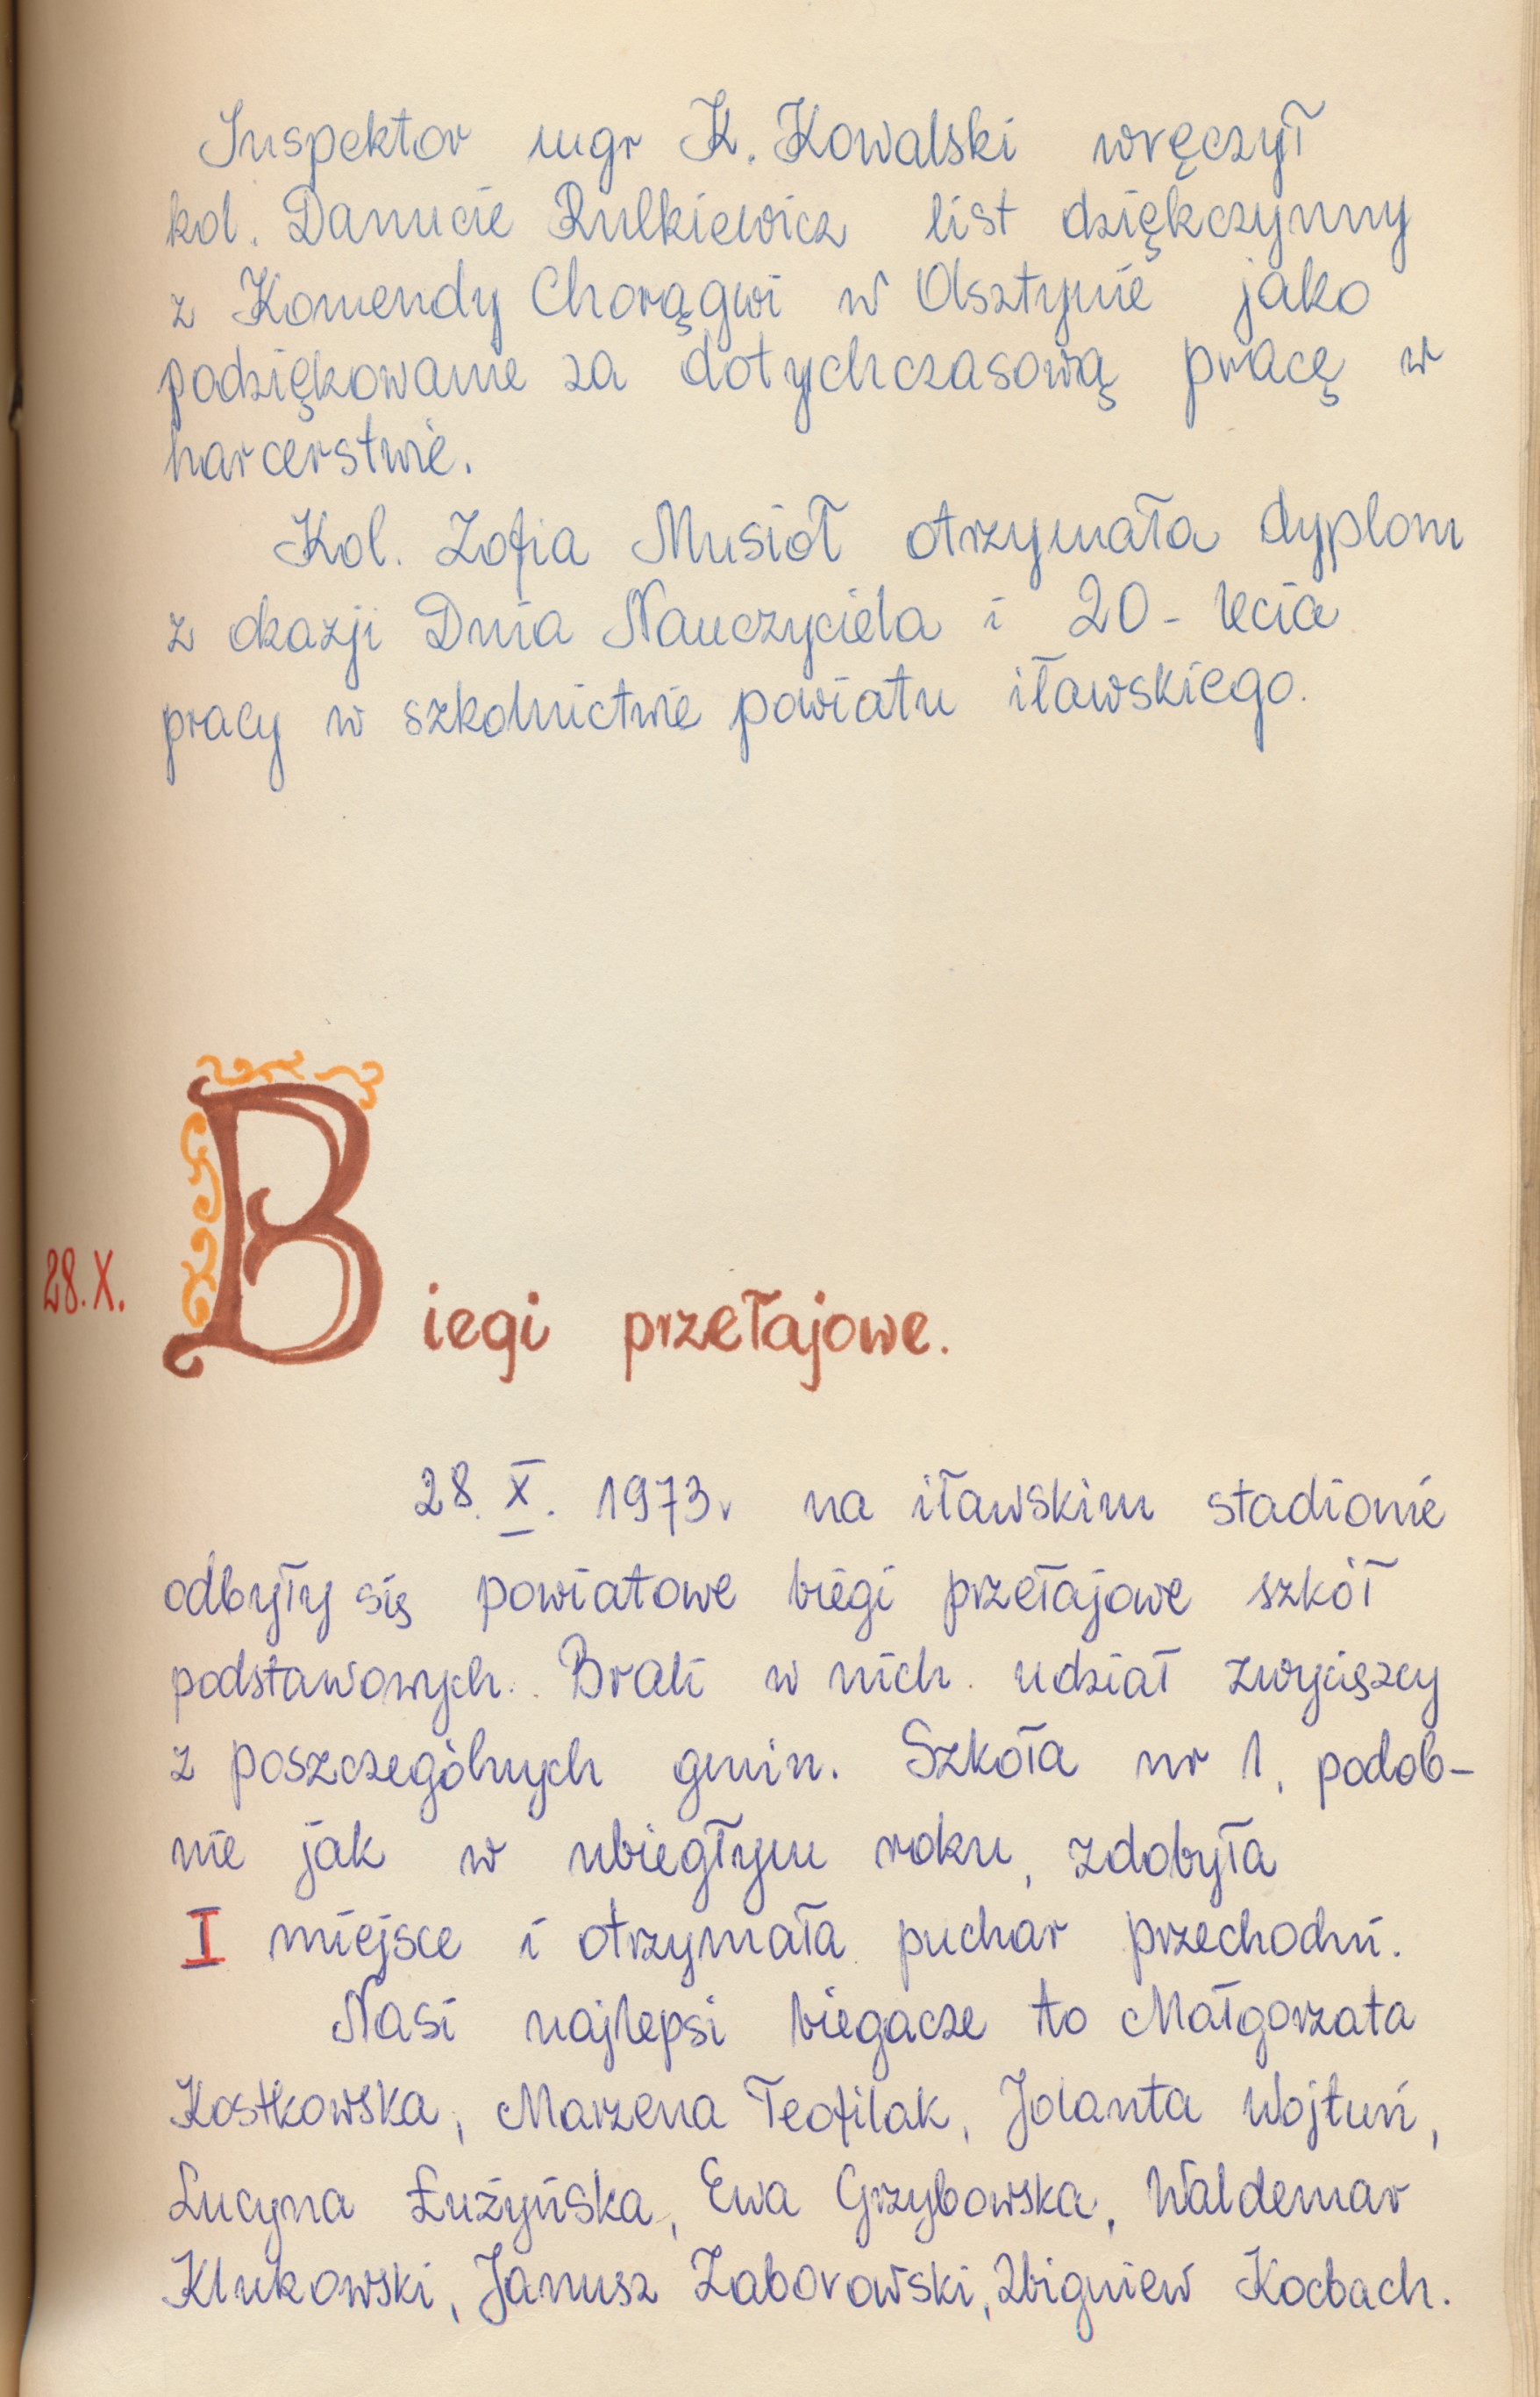 Inspektor mgr K. Kowalski wręczył
kol. Danucie Rulkiewicz list dziękczynny
z Komendy Chorągwi w Olsztynie jako
podziękowanie za dotychczasową pracę w
harcerstwie.
Kol. Zofia Musioł otrzymała dyplom
z okazji Dnia Nauczyciela i 20-lecia
pracy w szkolnictwie powiatu iławskiego.
28.X. Biegi przełajowe.
28.X.1973r na iławskim stadionie
odbyły się powiatowe biegi przełajowe szkół
podstawowych. Brali w nich udział zwycięzcy
z poszczególnych gmin. Szkoła nr 1, podob-
nie jak w ubiegłym roku, zdobyła
I miejsce i otrzymała puchar przechodni.
Nasi najlepsi biegacze to Małgorzata
Kostkowska, Marzena Teofilak, Jolanta Wojtuń,
Lucyna Łużyńska, Ewa Grzybowska, Waldemar
Klukowski, Janusz Zaborowski, Zbigniew Kocbach.